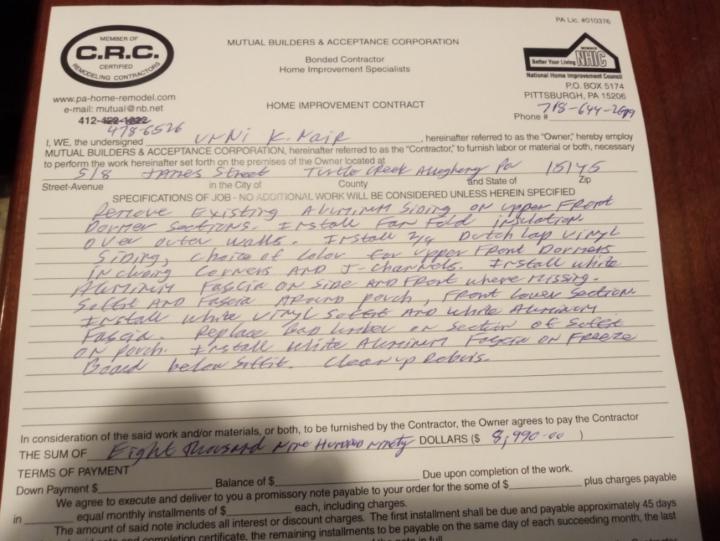 PA Lic. #010376
MEMBER OF
C.R.C.
CERTIFIED
REMODELING CONTRACTORS
MUTUAL BUILDERS & ACCEPTANCE CORPORATION
Bonded Contractor
Home Improvement Specialists
MEMBER
Better Your Living NHIC
National Home Improvement Council
P.O. BOX 5174
PITTSBURGH, PA 15206
www.pa-home-remodel.com
e-mail: mutual@nb.net
412-422-1022
478-6526
HOME IMPROVEMENT CONTRACT
Phone # 718-644-2699
I, WE, the undersigned Unni K. Nair, hereinafter referred to as the "Owner," hereby employ
MUTUAL BUILDERS & ACCEPTANCE CORPORATION, hereinafter referred to as the "Contractor," to furnish labor or material or both, necessary
to perform the work hereinafter set forth on the premises of the Owner located at
518 James Street Turtle Creek Allegheny Pa 15145
Street-Avenue in the City of County and State of Zip
SPECIFICATIONS OF JOB - NO ADDITIONAL WORK WILL BE CONSIDERED UNLESS HEREIN SPECIFIED
Remove Existing Aluminum Siding on upper Front
Dormer Sections. Install Fan Fold insulation
over outer walls. Install Dutch Lap Vinyl
Siding, Choice of Color for upper Front Dormers
Including Corners And J-channels. Install white
Aluminum Fascia on Side and Front where Missing.
Soffit And Fascia Around porch, Front Lower Section.
Install white vinyl Soffit And white Aluminum
Fascia. Replace Bad Lumber on Section of Soffit
on porch. Install white Aluminum Fascia on Freeze
Board below Soffit. Clean up Debris.
In consideration of the said work and/or materials, or both, to be furnished by the Contractor, the Owner agrees to pay the Contractor
THE SUM OF Eight Thousand Nine Hundred Ninety DOLLARS ($ 8,990.00 )
TERMS OF PAYMENT
Down Payment $ Balance of $ Due upon completion of the work.
We agree to execute and deliver to you a promissory note payable to your order for the some of $ plus charges payable
in equal monthly installments of $ each, including charges.
The amount of said note includes all interest or discount charges. The first installment shall be due and payable approximately 45 days
completion certificate, the remaining installments to be payable on the same day of each succeeding month, the last